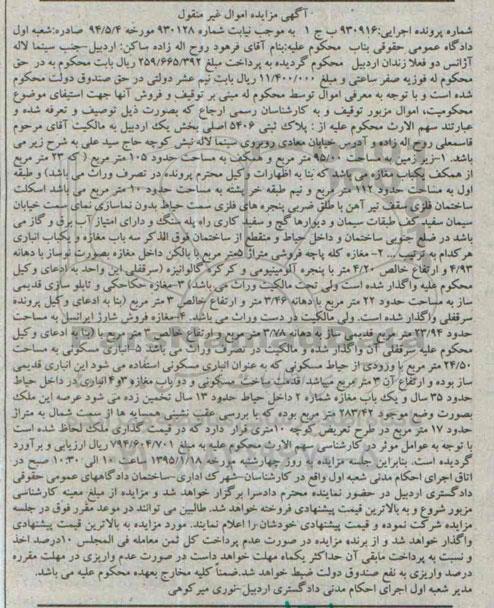 آگهی مزایده اموال غیر منقول
شماره پرونده اجرایی: ۹۳۰۹۱۶ ب ج ۱ به موجب نیابت شماره ۹۳۰۱۲۸ مورخه ۹۴/۵/۴ صادره: شعبه اول
دادگاه عمومی حقوقی بناب محکوم علیه: بنام آقای فرهود روح اله زاده ساکن: اردبیل-جنب سینما لاله
آژانس دو فعلا زندان اردبیل محکوم گردیده به پرداخت مبلغ ۲۵۹/۶۶۵/۳۹۲ ریال بابت محکوم به در حق
محکوم له فوزیه صفر ساعتی و مبلغ ۱۱/۴۰۰/۰۰۰ ریال بابت نیم عشر دولتی در حق صندوق دولت محکوم
شده است و با توجه به معرفی اموال توسط محکوم له مبنی بر توقیف و فروش آنها جهت استیفای موضوع
محکومیت، اموال مزبور توقیف و به کارشناسان رسمی ارجاع که بصورت ذیل توصیف و تعرفه شده و
عبارتند سهم الارث محکوم علیه از: پلاک ثبتی ۵۴۰۶ اصلی بخش یک اردبیل به مالکیت آقای مرحوم
قاسمعلی روح اله زاده و آدرس خیابان معادی روبروی سینما لاله نبش کوچه حاج سید علی به شرح زیر می
باشد. ۱-زیر زمین به مساحت ۹۵/۰۰ متر مربع و همکف به مساحت حدود ۱۰۵ متر مربع (که ۲۳ متر مربع
از همکف یکباب مغازه می باشد که بنا به اظهارات وکیل محترم پرونده در تصرف وراث می باشد) و طبقه
اول به مساحت حدود ۱۱۲ متر مربع و نیم طبقه خر پشته به مساحت حدود ۱۰ متر مربع می باشد اسکلت
ساختمان فلزی سقف تیر آهن با طاق ضربی پنجره های فلزی سمت حیاط بدون نماسازی نمای سمت خیابان
سیمان سفید کف طبقات سیمان و دیوارها گچ و سفید کاری راه پله سنگ و دارای امتیاز آب برق و گاز می
باشد در ضلع جنوبی ساختمان و داخل حیاط و منقطع از ساختمان فوق الذکر سه باب مغازه و یکباب انباری
هر کدام به ترتیب ... ۲- مغازه کله پاچه فروشی متراژ متر مربع با بالکن داخل مغازه بصورت نوساز با دهانه
۴/۹۳ و ارتفاع خالص ۴/۲۰ متر با پنجره آلومینیومی و کرکره گالوانیزه (سرقفلی این واحد به ادعای وکیل
محکوم علیه واگذار شده است ولی تحت مالکیت وراث می باشد) ۳-مغازه حکاکی و تابلو سازی قدیمی
ساز به مساحت حدود ۲۲ متر مربع با دهانه ۳/۴۶ متر و ارتفاع خالص ۳ متر مربع (بنا به ادعای وکیل پرونده
سرقفلی واگذار شده است. ولی مالکیت در دست وراث می باشد. ۴-مغازه فروش شارژ ایرانسل به مساحت
حدود ۲۳/۹۴ متر مربع قدیمی ساز به دهانه ۳/۷۸ متر مربع و ارتفاع خالص ۳ متر مربع با (بنا به ادعای وکیل
محکوم علیه سرقفلی آن واگذار شده و مالکیت در تصرف وراث می باشد ۵-انباری مسکونی به مساحت
۲۴/۵۰ متر مربع با ورودی از حیاط مسکونی که به عنوان انباری مسکونی استفاده می شود این انباری قدیمی
ساز بوده و ارتفاع آن ۳ متر مربع میباشد. قدمت ساخت مسکونی و دو باب مغازه ۳و۴ انباری در داخل حیاط
حدود ۳۵ سال و یک باب مغازه شماره ۲ داخل حیاط حدود ۱۳ سال تخمین زده می شود عرصه این ملک
بصورت وضع موجود ۲۸۳/۴۲ متر مربع بوده که با بررسی عقب نشینی همسایه ها از سمت شمال به متراژ
حدود ۱۷ متر مربع در طرح تعریض کوچه ۱۰متری قرار دارد که در قیمت گذاری ملک لحاظ شده است
با توجه به عوامل موثر در کارشناسی سهم الارث محکوم علیه به مبلغ ۷۹۴/۶۰۴/۷۰۱ ریال ارزیابی و برآورد
گردیده است. بنابراین جلسه مزایده به روز چهارشنبه مورخه ۱۳۹۵/۱/۱۸ ساعت ۱۰ الی ۱۰:۳۰ صبح در
اتاق اجرای احکام مدنی شعبه اول واقع در کارشناسان-شهرک اداری-ساختمان دادگاههای عمومی حقوقی
دادگستری اردبیل در حضور نماینده محترم دادسرا برگزار خواهد شد و مزایده از مبلغ معینه کارشناسی
مزبور شروع و به بالاترین قیمت پیشنهادی فروخته خواهد شد. طالبین می توانند در موعد مقرر فوق در جلسه
مزایده شرکت نموده و قیمت پیشنهادی خودشان را اعلام نمایند. مورد مزایده به بالاترین قیمت پیشنهادی
واگذار خواهد شد و از برنده مزایده در صورت عدم پرداخت کل ثمن معامله فی المجلس ۱۰درصد اخذ
و نسبت به پرداخت مابقی آن حداکثر یکماه مهلت خواهد داست در صورت عدم واریزی در مهلت مقرره
درصد واریزی به نفع صندوق دولت ضبط خواهد شد.ضمناً کلیه مخارج بعهده محکوم علیه می باشد.
مدیر شعبه اول اجرای احکام مدنی دادگستری اردبیل-نوری میر کوهی